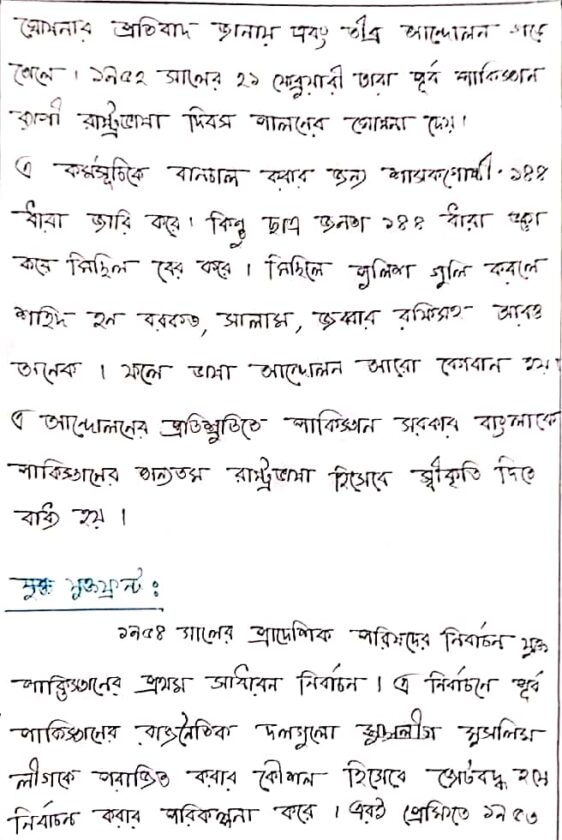 ঘোষনার প্রতিবাদ জানায় এবং তীব্র আন্দোলন গড়ে
তোলে । ১৯৫২ সালের ২১ ফেব্রুয়ারী তারা পূর্ব পাকিস্তান
ব্যাপী রাষ্ট্রভাষা দিবস পালনের ঘোষনা দেয়।
এ কর্মসূচিকে বানচাল করার জন্য শাসকগোষ্ঠী ১৪৪
ধারা জারি করে। কিন্তু ছাত্র জনতা ১৪৪ ধারা ভঙ্গ
করে মিছিল বের করে । মিছিলে পুলিশ গুলি করলে
শহিদ হন বরকত, সালাম, জব্বার রফিসহ আরও
অনেক । ফলে ভাষা আন্দোলন আরো বেগবান হয়।
এ আন্দোলনের প্রতিশ্রুতিতে পাকিস্তান সরকার বাংলাকে
পাকিস্তানের অন্যতম রাষ্ট্রভাষা হিসেবে স্বীকৃতি দিতে
বাধ্য হয় ।
যুক্তফ্রন্ট :
১৯৫৪ সালের প্রাদেশিক পরিষদের নির্বাচন
পাকিস্তানের প্রথম সাধারন নির্বাচন । এ নির্বাচনে পূর্ব
পাকিস্তানের রাজনৈতিক দলগুলো মুসলিম
লীগকে পরাজিত করার কৌশল হিসেবে জোটবদ্ধ হয়ে
নির্বাচন করার পরিকল্পনা করে । এরই প্রেক্ষিতে ১৯৫৩